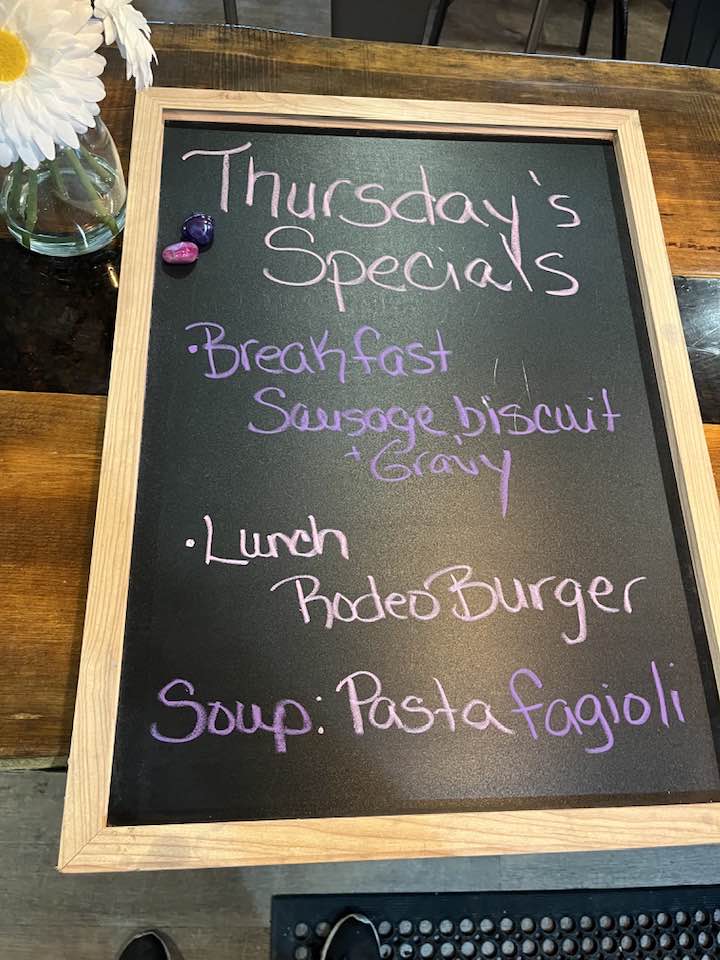 Thursday's
Specials
• Breakfast
Sausage biscuit
+ Gravy
• Lunch
Rodeo Burger
Soup: Pasta fagioli